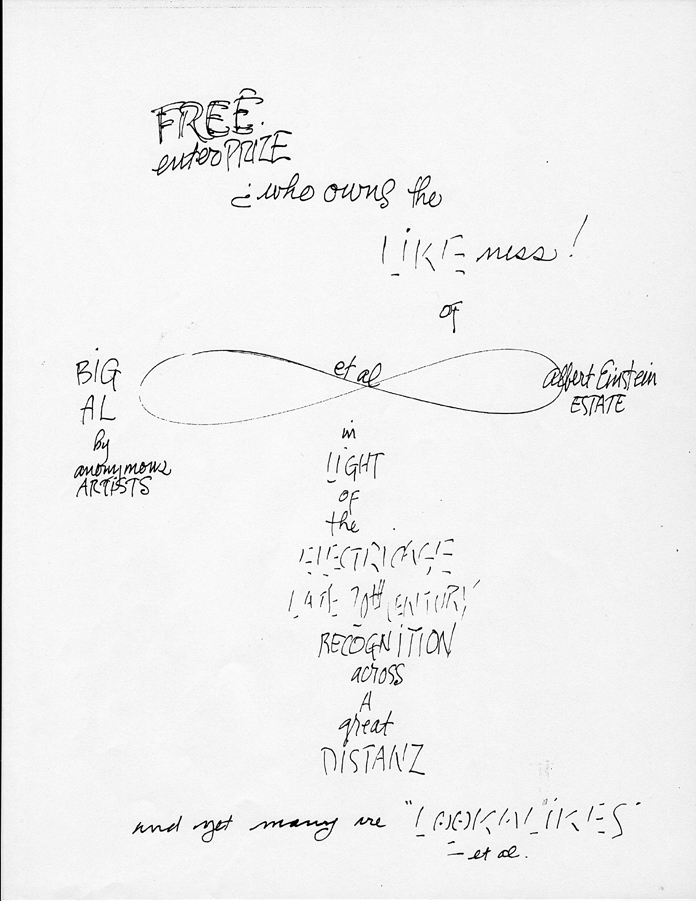 FREE.
enterPRIZE
¿who owns the
LiKEness!
OF
BiG
AL
by
anonymous
ARTiSTS
et al
albert Einstein
ESTATE
in
LIGHT
OF
the
LATE 20th CENTURY
RECOGNiTiON
across
A
great
DiSTANZ
and yet many are "LOOKAL"iKES
- et al.